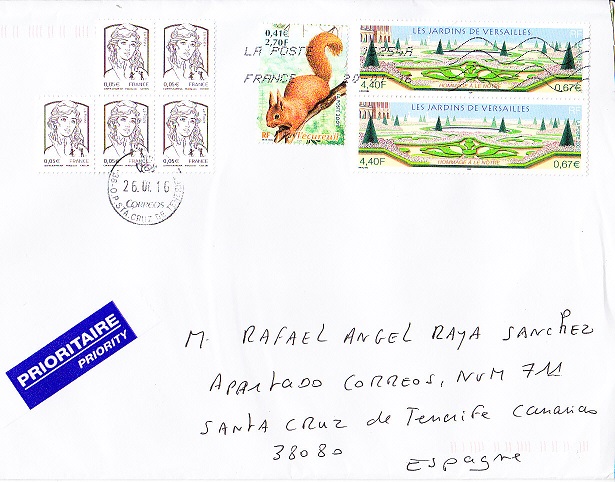 0,05€ 0,05€
0,05€ 0,05€ 0,05€
0,41€
2,70F
RF Écureuil
LES JARDINS DE VERSAILLES
4,40F HOMMAGE À LE NÔTRE 0,67€
LES JARDINS DE VERSAILLES
4,40F HOMMAGE À LE NÔTRE 0,67€
LA POSTE
FRANCE
STA. CRUZ DE TENERIFE
CORREOS
PRIORITAIRE
PRIORITY
M. RAFAEL ANGEL RAYA SANCHEZ
APARTADO CORREOS, NUM 711
SANTA CRUZ de Tenerife Canarias
38080
Espagne